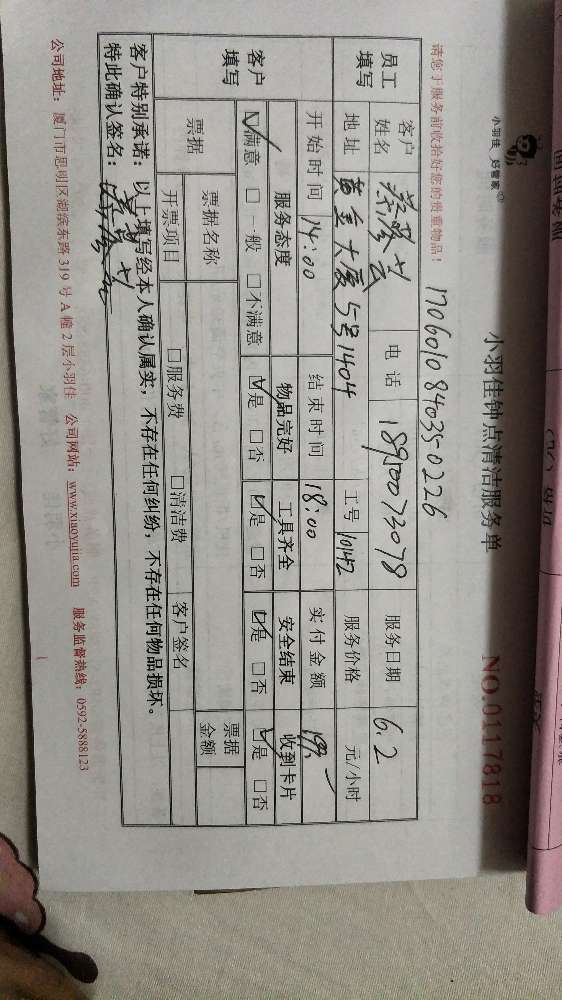 小羽佳 好管家
小羽佳钟点清洁服务单
NO.0117818
请您于服务前收拾好您的贵重物品！
1706010840350226
员工填写 客户姓名 电话 18950073078 服务日期 6.2
地址 黄金大厦5号1404 工号 10142 服务价格 元/小时
客户填写 开始时间 14:00 结束时间 18:00 实付金额
服务态度 物品完好 工具齐全 安全结束 收到卡片
☑满意 □一般 □不满意 ☑是 □否 ☑是 □否 ☑是 □否 ☑是 □否
票据 票据名称 票据金额
开票项目 □服务费 □清洁费 客户签名
客户特别承诺：以上填写经本人确认属实，不存在任何纠纷，不存在任何物品损坏。
特此确认签名：
公司地址：厦门市思明区湖滨东路319号A幢2层小羽佳 公司网站：www.xiaoyujia.com 服务监督热线：0592-5888123